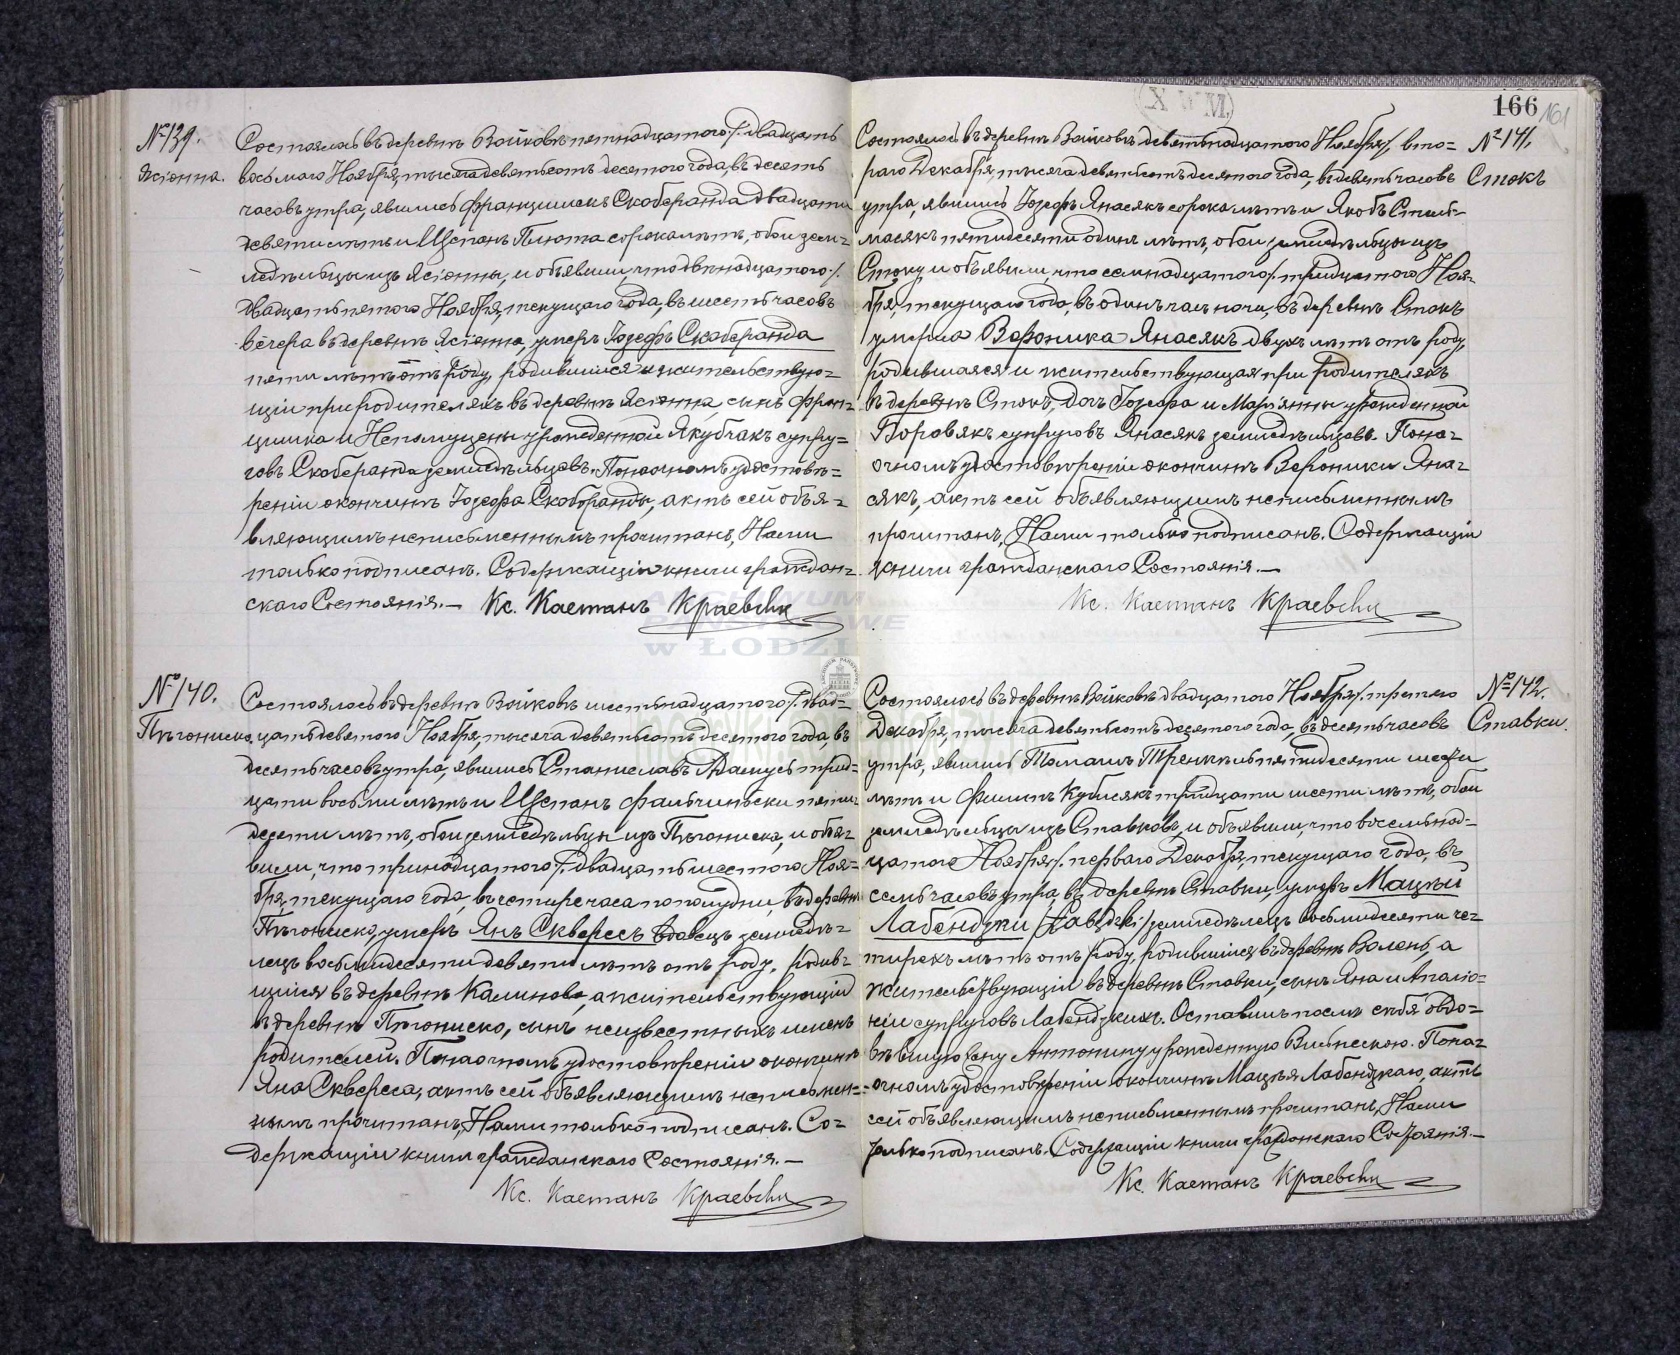 № 139.
Ясіонна.
Состоялось въ деревнѣ Войковѣ пятнадцатого /:двадцать
восьмаго Ноября, тысяча девятьсотъ десятого года, въ десять
часовъ утра, явились Францишекъ Скоберанда двадцати
девяти лѣтъ и Щепанъ Плюта сорока лѣтъ, обои зем=
ледѣльцы изъ Ясіонны, и объявили, что двѣнадцатого /:
двадцать пятого Ноября, текущаго года, въ шесть часовъ
вечера въ деревнѣ Ясіонна, умеръ Іозефъ Скоберанда
пяти лѣтъ отъ роду, родившійся и жительствую=
щій при родителяхъ въ деревнѣ Ясіонна, сынъ Фран=
цишка и Непомуцены урожденной Якубчакъ супру=
говъ Скоберанда земледѣльцевъ. По наочномъ удостовѣ=
реніи о кончинѣ Іозефа Скоберанды, актъ сей объя=
вляющимъ неписьменнымъ прочитанъ, Нами
только подписанъ. Содержащій книги граждан=
скаго Состоянія.—
Кс. Каетанъ Краевски
№ 140.
Пѣгониско.
Состоялось въ деревнѣ Войковѣ шестьнадцатого /:двад=
цать девятого Ноября, тысяча девятьсотъ десятого года, въ
десять часовъ утра, явились Станиславъ Адамусъ трид=
цати восьми лѣтъ и Щепанъ Фальчиньски пяти=
десяти лѣтъ, обои земледѣльцы изъ Пѣгониска, и объя=
вили, что тринадцатого /:двадцать шестого Ноя=
бря, текущаго года, въ четыре часа пополудни, въ деревнѣ
Пѣгониско, умеръ Янъ Сквересъ вдовецъ земледѣ=
лецъ восьмидесяти девяти лѣтъ отъ роду, родив=
шійся въ деревнѣ Калиново, а жительствующій
въ деревнѣ Пѣгониско, сынъ неизвестныхъ именъ
родителей. По наочномъ удостовѣреніи о кончинѣ
Яна Сквереса, актъ сей объявляющимъ неписьмен=
нымъ прочитанъ, Нами только подписанъ. Со=
держащій книги гражданскаго Состоянія.—
Кс. Каетанъ Краевски
166
161
№ 141.
Стокъ
Состоялось въ деревнѣ Войковѣ девятьнадцатого Ноября /: вто=
раго Декабря, тысяча девятьсотъ десятого года, въ девять часовъ
утра, явились Іозефъ Янасякъ сорока лѣтъ и Якобъ
пятидесяти одинъ лѣтъ, обои земледѣльцы изъ
Стоку и объявили, что семнадцатого /: тридцатого Ноя=
бря, текущаго года, въ одинъ часъ ночи, въ деревнѣ Стокъ
умерла Вероника Янасякъ двухъ лѣтъ отъ роду,
родившаяся и жительствующая при родителяхъ
въ деревнѣ Стокъ, дочь Іозефа и Марянны урожденной
Боровякъ супруговъ Янасякъ земледѣльцевъ. По на=
очномъ удостовѣреніи о кончинѣ Вероники Яна=
сякъ, актъ сей объявляющимъ неписьменнымъ
прочитанъ, Нами только подписанъ. Содержащій
книги гражданскаго Состоянія.—
Кс. Каетанъ Краевски
№ 142.
Ставки.
Состоялось въ деревнѣ Войковѣ двадцатого Ноября /: третяго
Декабря, тысяча девятьсотъ десятого года, въ десять часовъ
утра, явились Томашъ пятидесяти шести
лѣтъ и Филипъ Кубисякъ тридцати шести лѣтъ, обои
земледѣльцы изъ Ставковъ, и объявили, что восемьнад=
цатого Ноября /: перваго Декабря, текущаго года, въ
семь часовъ утра, въ деревнѣ Ставки, умеръ Мацѣй
Лабендзки земледѣлецъ восьмидесяти че=
тырехъ лѣтъ отъ роду, родившійся въ деревнѣ Воленъ, а
жительствующій въ деревнѣ Ставки, сынъ Яна и Аполо=
ніи супруговъ Лабендзкихъ. Оставилъ послѣ себя овдо=
вѣвшую жену Антонину урожденную По на=
очномъ удостовѣреніи о кончинѣ Мацѣя Лабендзкаго, актъ
сей объявляющимъ неписьменнымъ прочитанъ, Нами
только подписанъ. Содержащій книги гражданскаго Состоянія.—
Кс. Каетанъ Краевски
ARCHIWUM
PAŃSTWOWE
W ŁODZI